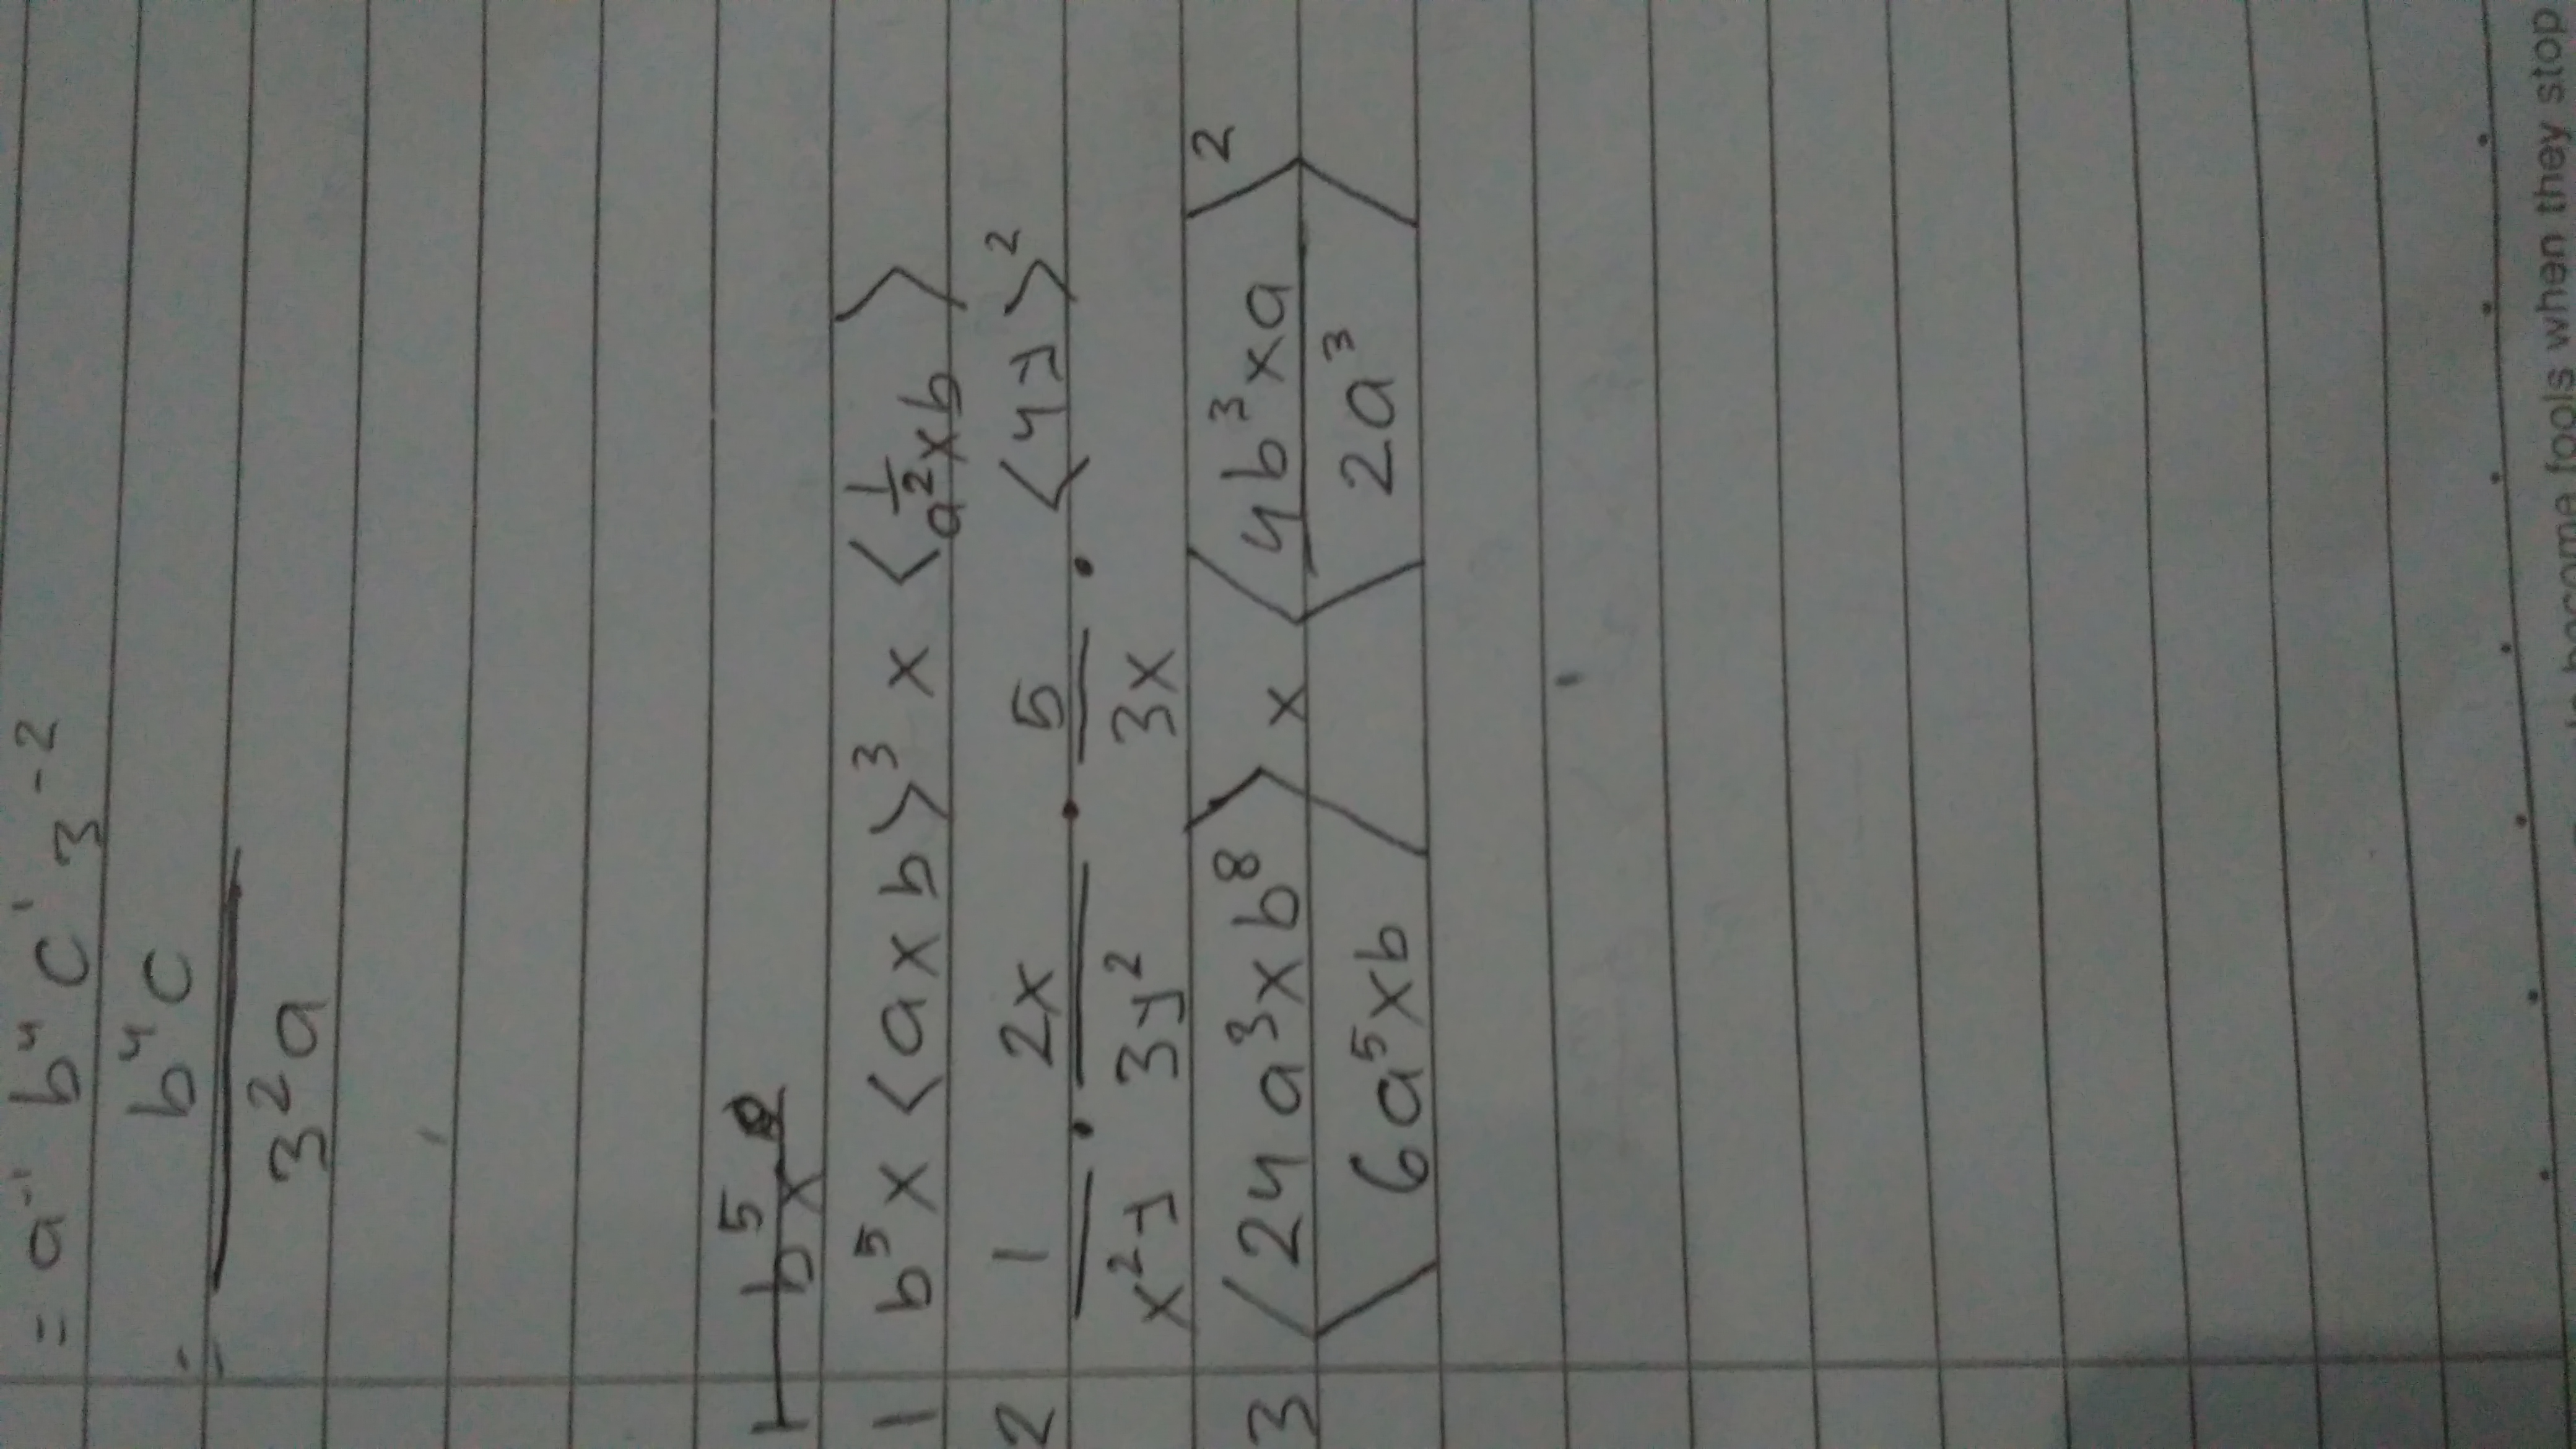 = a⁻¹ b⁴ c¹ 3⁻²
b⁴c
3²a
1 b⁵x
1 b⁵ x <a x b>³ x <1/a² x b>
2 1/x²y . 2x/3y² . 5/3x . <4y>²
3 <24a³ x b⁸/6a⁵ x b> x <4b³ x a/2a³>²
become fools when they stop